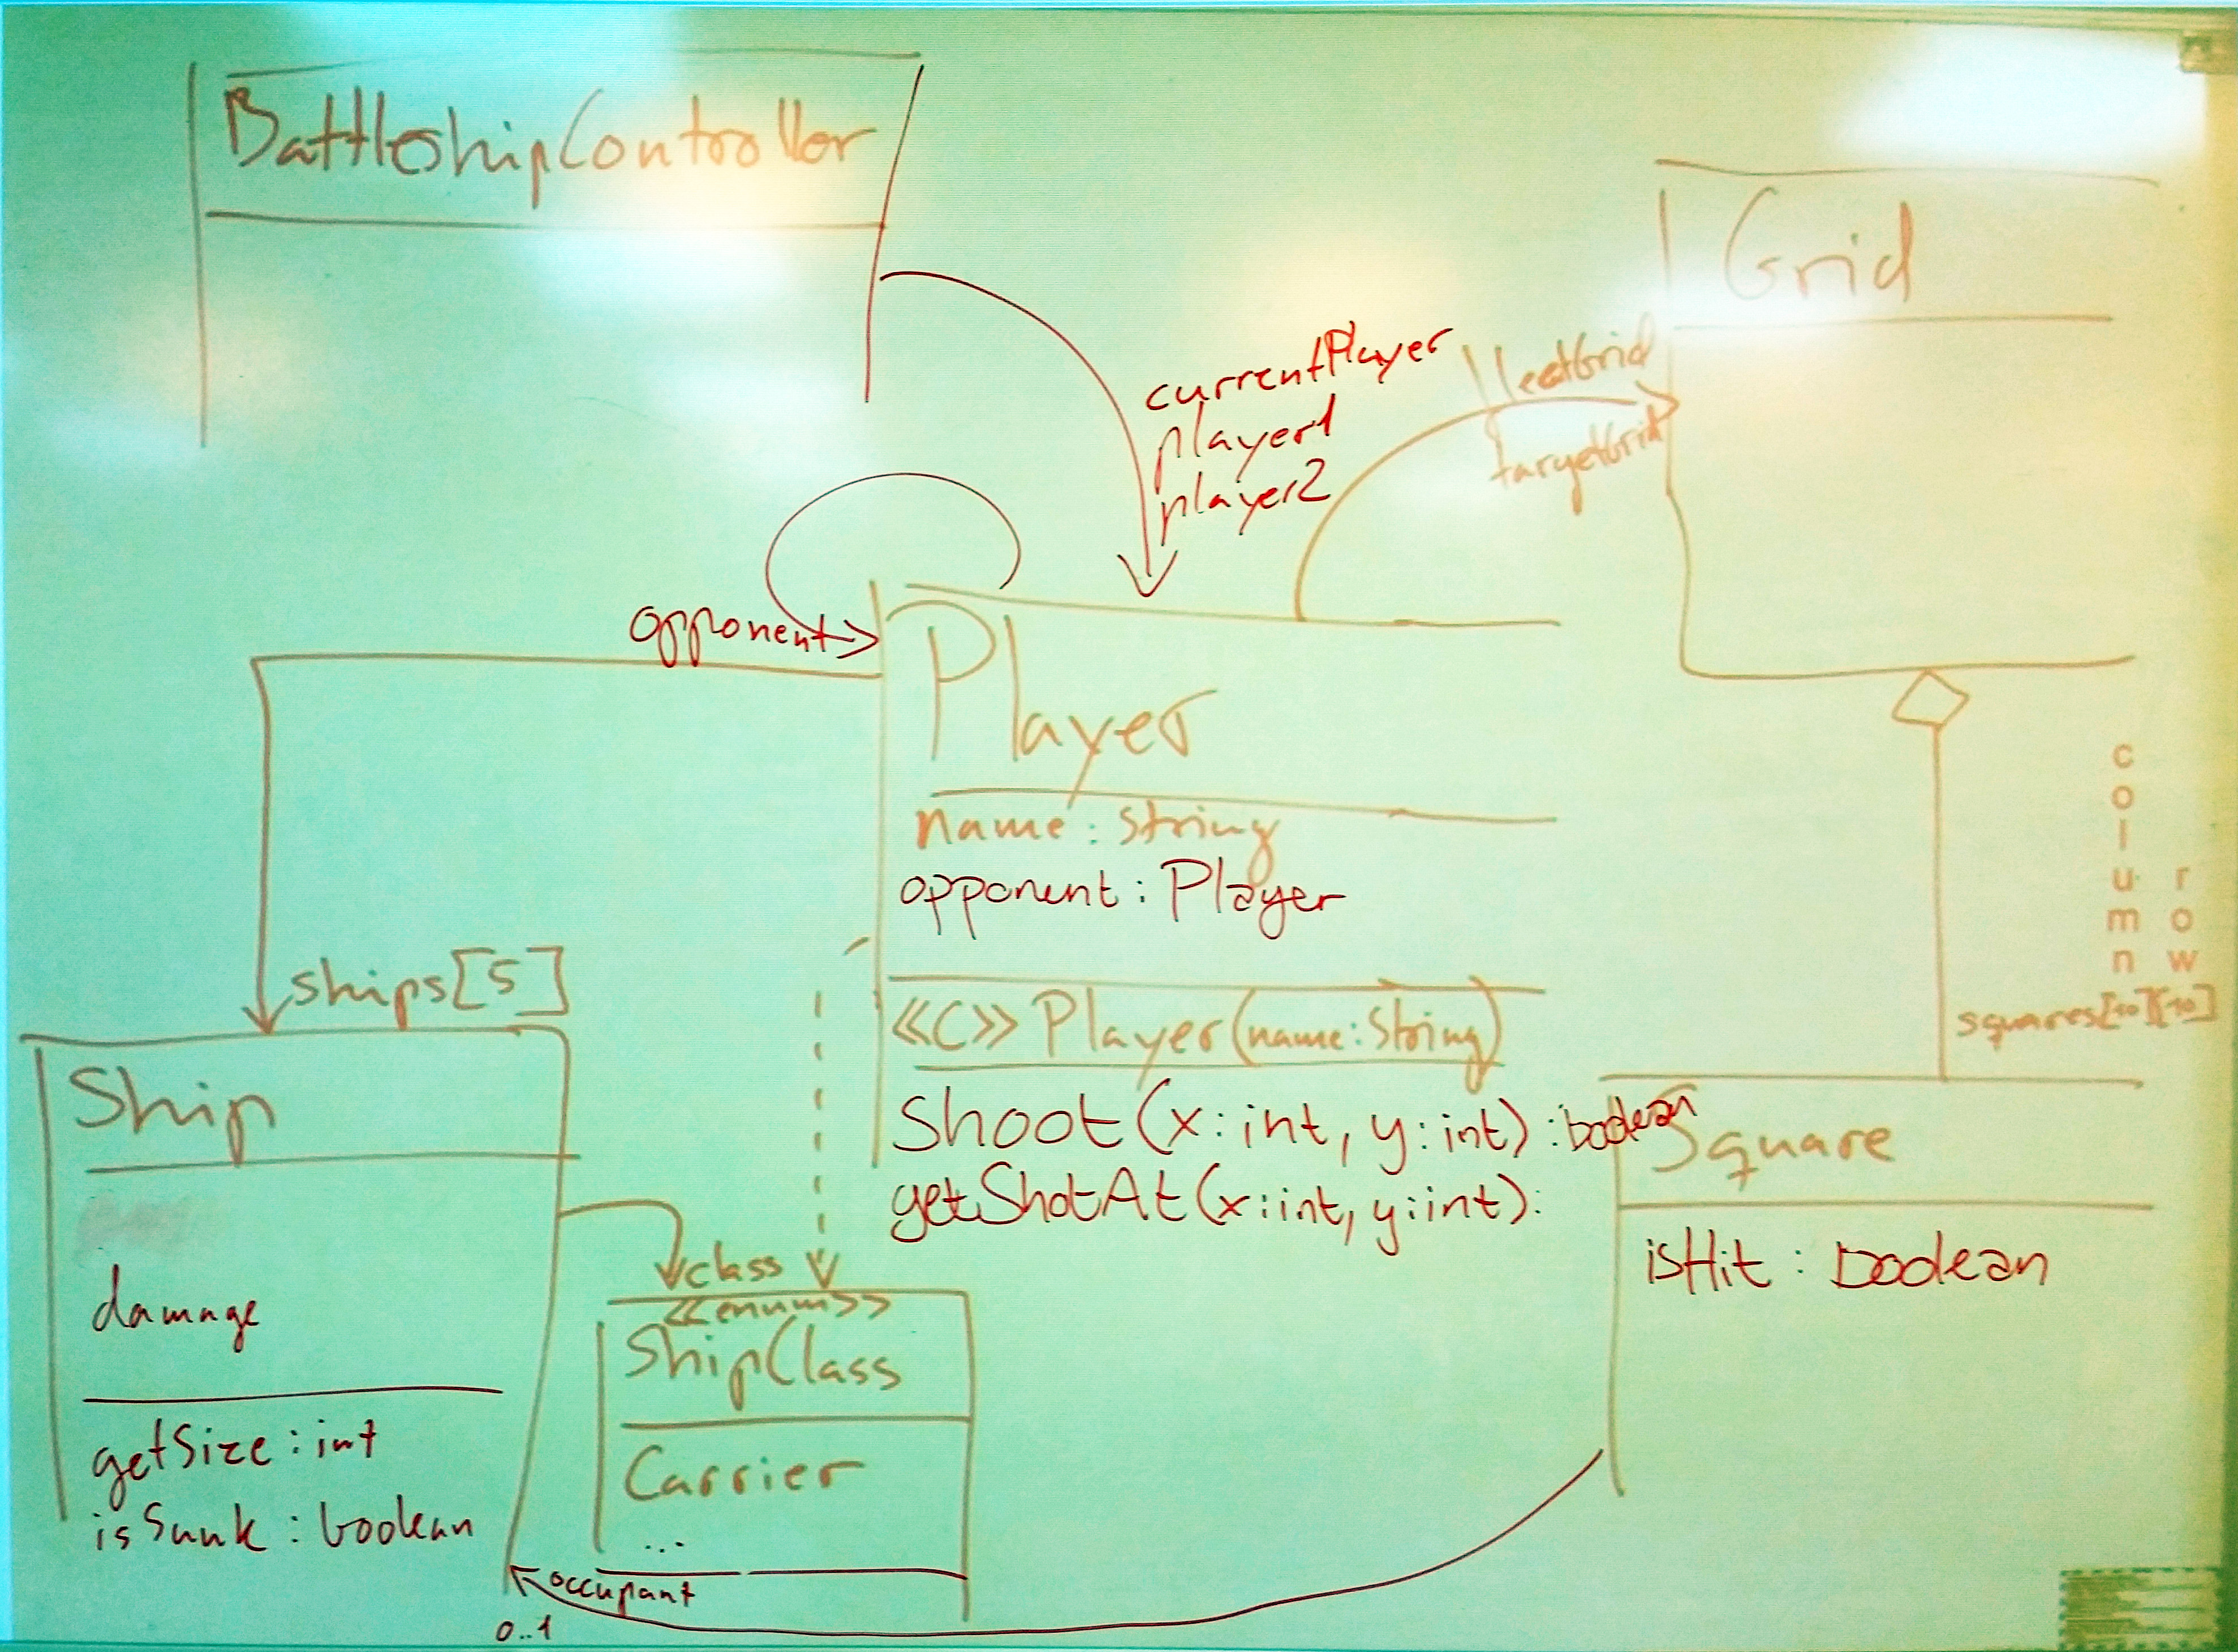 BattleshipController
Grid
currentPlayer
player1
player2
fleetGrid
targetGrid
opponent
Player
name : String
opponent : Player
<<C>> Player(name : String)
Shoot(x : int, y : int) : boolean
getShotAt(x : int, y : int) :
column
row
squares[10][10]
ships[5]
Ship
damage
getSize : int
isSunk : boolean
class
<<enum>>
ShipClass
Carrier
...
Square
isHit : boolean
occupant
0..1